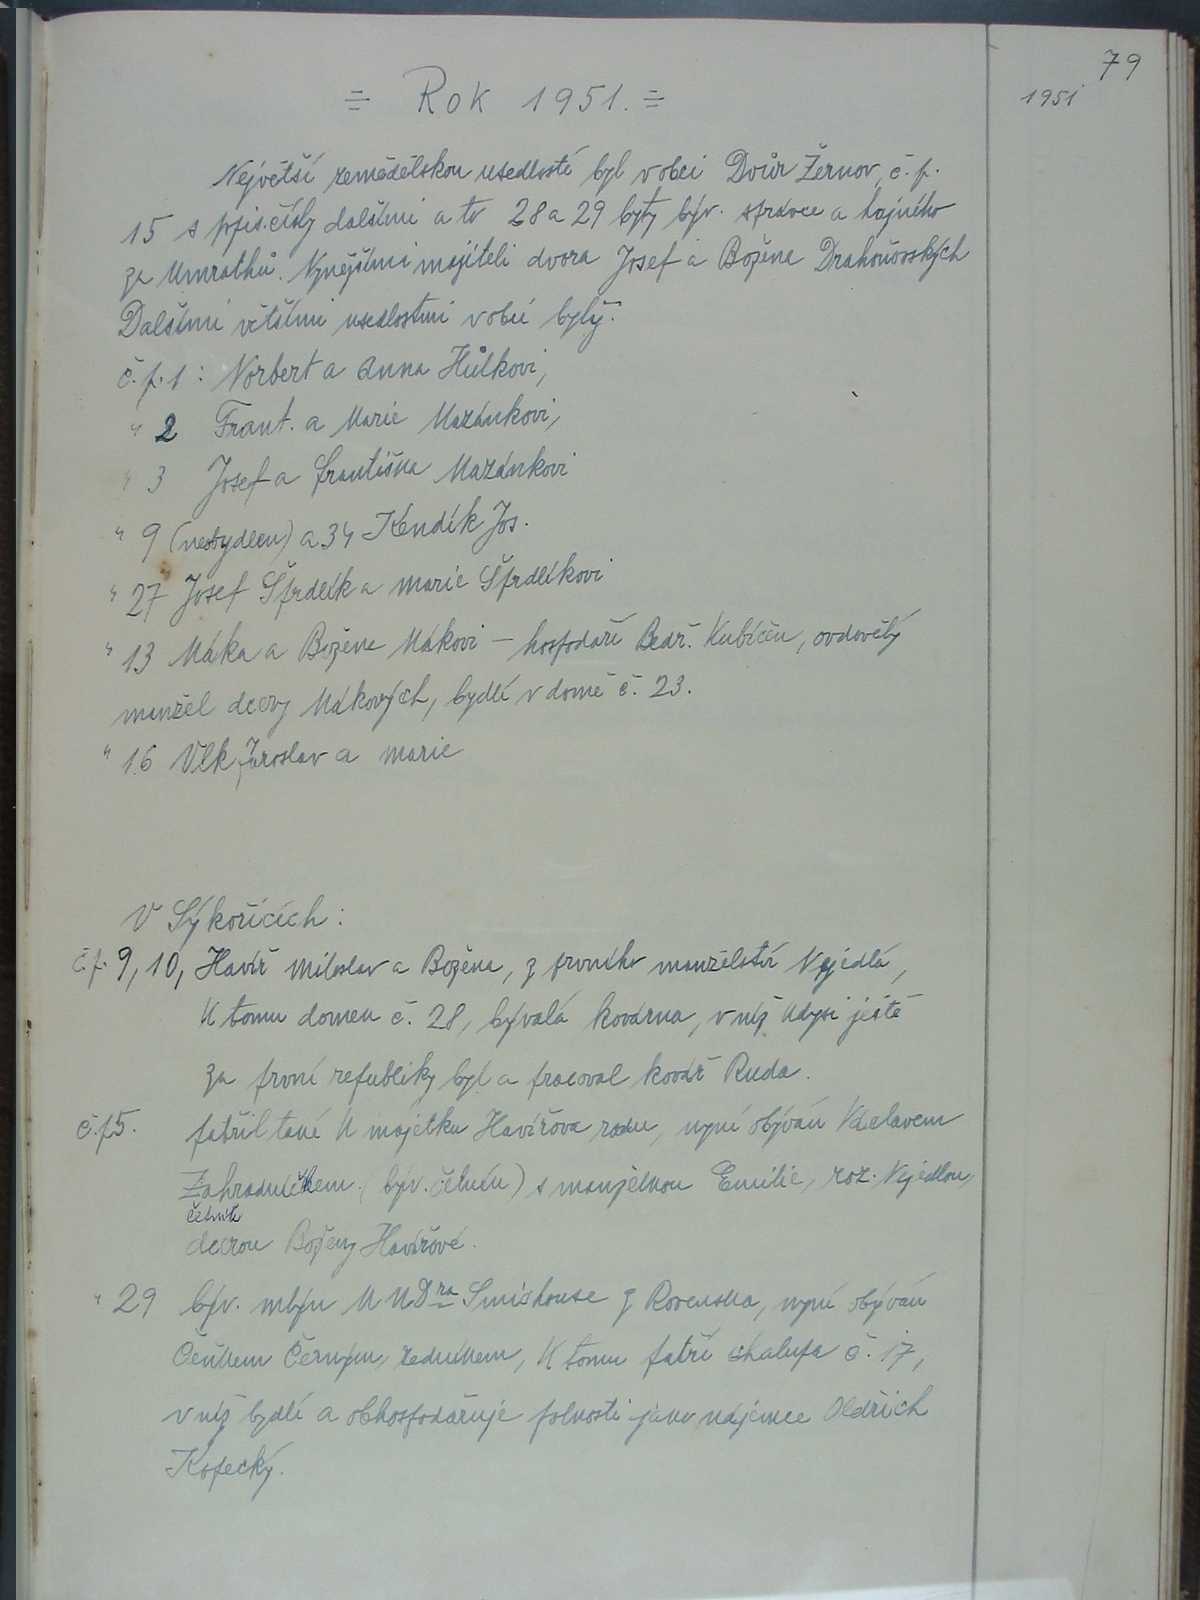 79
1951
= Rok 1951. =
Největší zemědělskou usedlostí byl v obci Dvůr Žernov, č. p.
15 s čísly dalšími a to 28 a 29 byty býv. správce a hajného
za Umrathů. Nynějšími majiteli dvora Josef a Božena Drahoňovských
Dalšími většími usedlostmi v obci byly:
č. p. 1 : Norbert a Anna Hůlkovi,
" 2 Frant. a Marie Mazánkovi,
" 3 Josef a Františka Mazánkovi
" 9 (neobydlen) a 34 Kendík Jos.
" 27 Josef Šprdlík a Marie Šprdlíkovi
" 13 Máka a Božena Mákovi – hospodaří Bedř. Kubíček, ovdovělý
manžel dcery Mákových, bydlí v domě č. 23.
" 16 Vlk Jaroslav a Marie
V Sýkořicích :
č. p. 9, 10, Havíř Miloslav a Božena, z prvního manželství Nejedlá,
K tomu domek č. 28, bývalá kovárna, v níž kdysi ještě
za první republiky byl a pracoval kovář Ruda.
č. p. 5. patřil také k majetku Havířova rodu, nyní obýván Václavem
Zahradníčkem (býv. četník) s manželkou Emilie, roz. Nejedlou,
četník
dcerou Boženy Havířové.
" 29 býv. mlýn u dra z Rovenska, nyní obýván
Čeňkem Černým, zedníkem, K tomu patří chalupa č. 17,
v níž bydlí a obhospodařuje polnosti jako nájemce Oldřich
Kopecký.